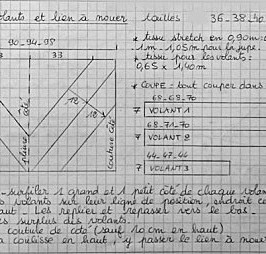 volants et lien à nouer tailles 36-38-40
90-94-98
33
* tissu stretch en 0,90m
1m - 1,05m pour la jupe.
* tissu pour les volants:
0,65 x 1,40m
* COUPE: tout couper dans
68-68-70
7 VOLANT 1
68-71-70
7 VOLANT 2
44-47-46
7 VOLANT 3
12
18
pliure côté
couture côté
- surfiler 1 grand et 1 petit côté de chaque volant
volants sur leur ligne de position, endroit
- Les replier et repasser vers le bas.
surplus des volants.
couture de côté (sauf 10 cm en haut)
coulisse en haut, y passer le lien à nouer